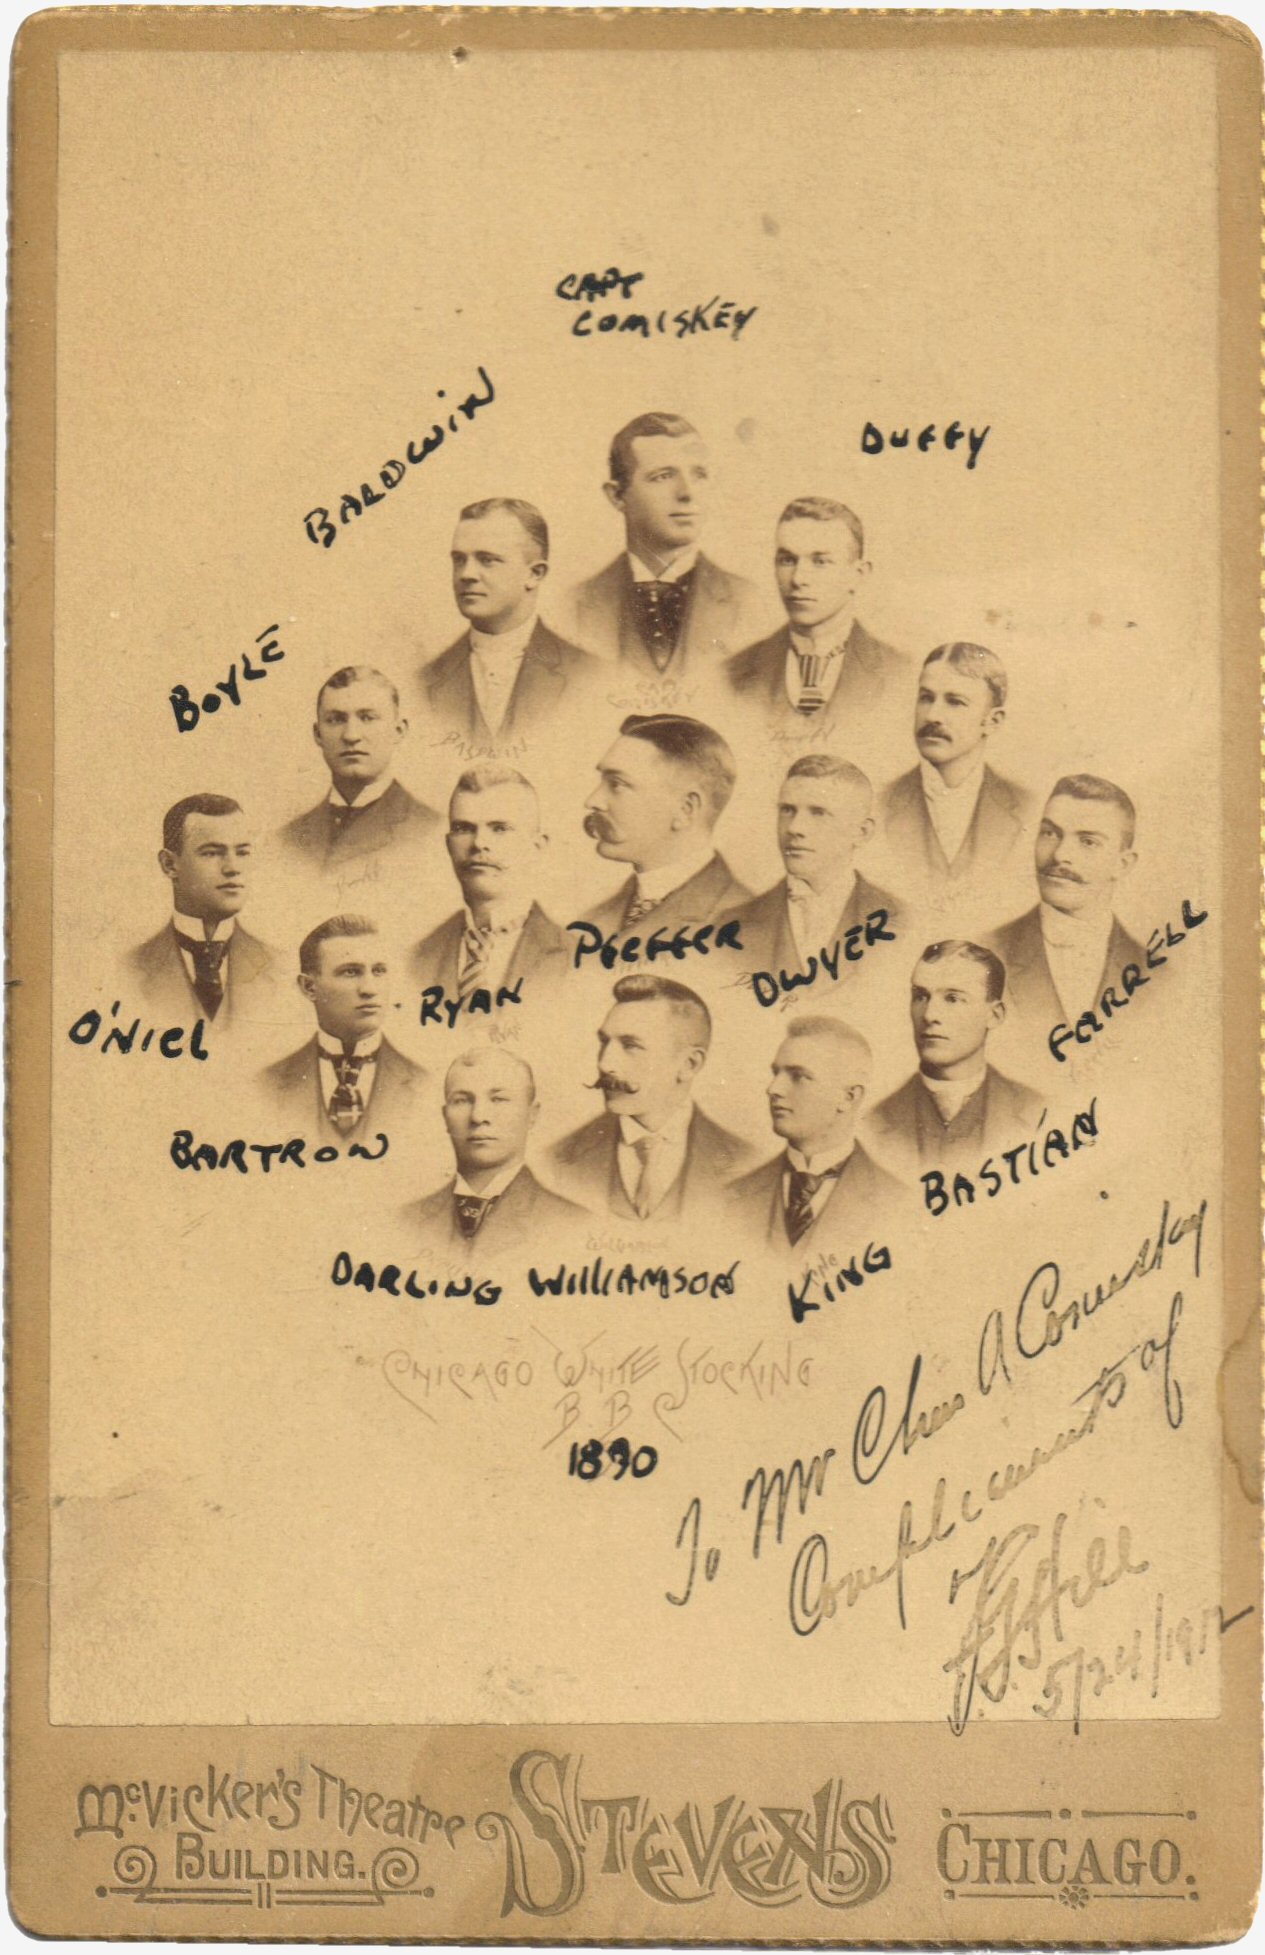 CAPT
COMISKEY
BALDWIN
DUFFY
BOYLE
BALDWIN
O'NIEL
RYAN
PFEFFER
DWYER
FARRELL
BARTROW
BASTIAN
DARLING
WILLIAMSON
KING
CHICAGO WHITE STOCKING
B. B. C
1890
To Mr Chas A Comiskey
Compliments of
5/24/1912
McVicker's Theatre
Building.
Stevens
Chicago.